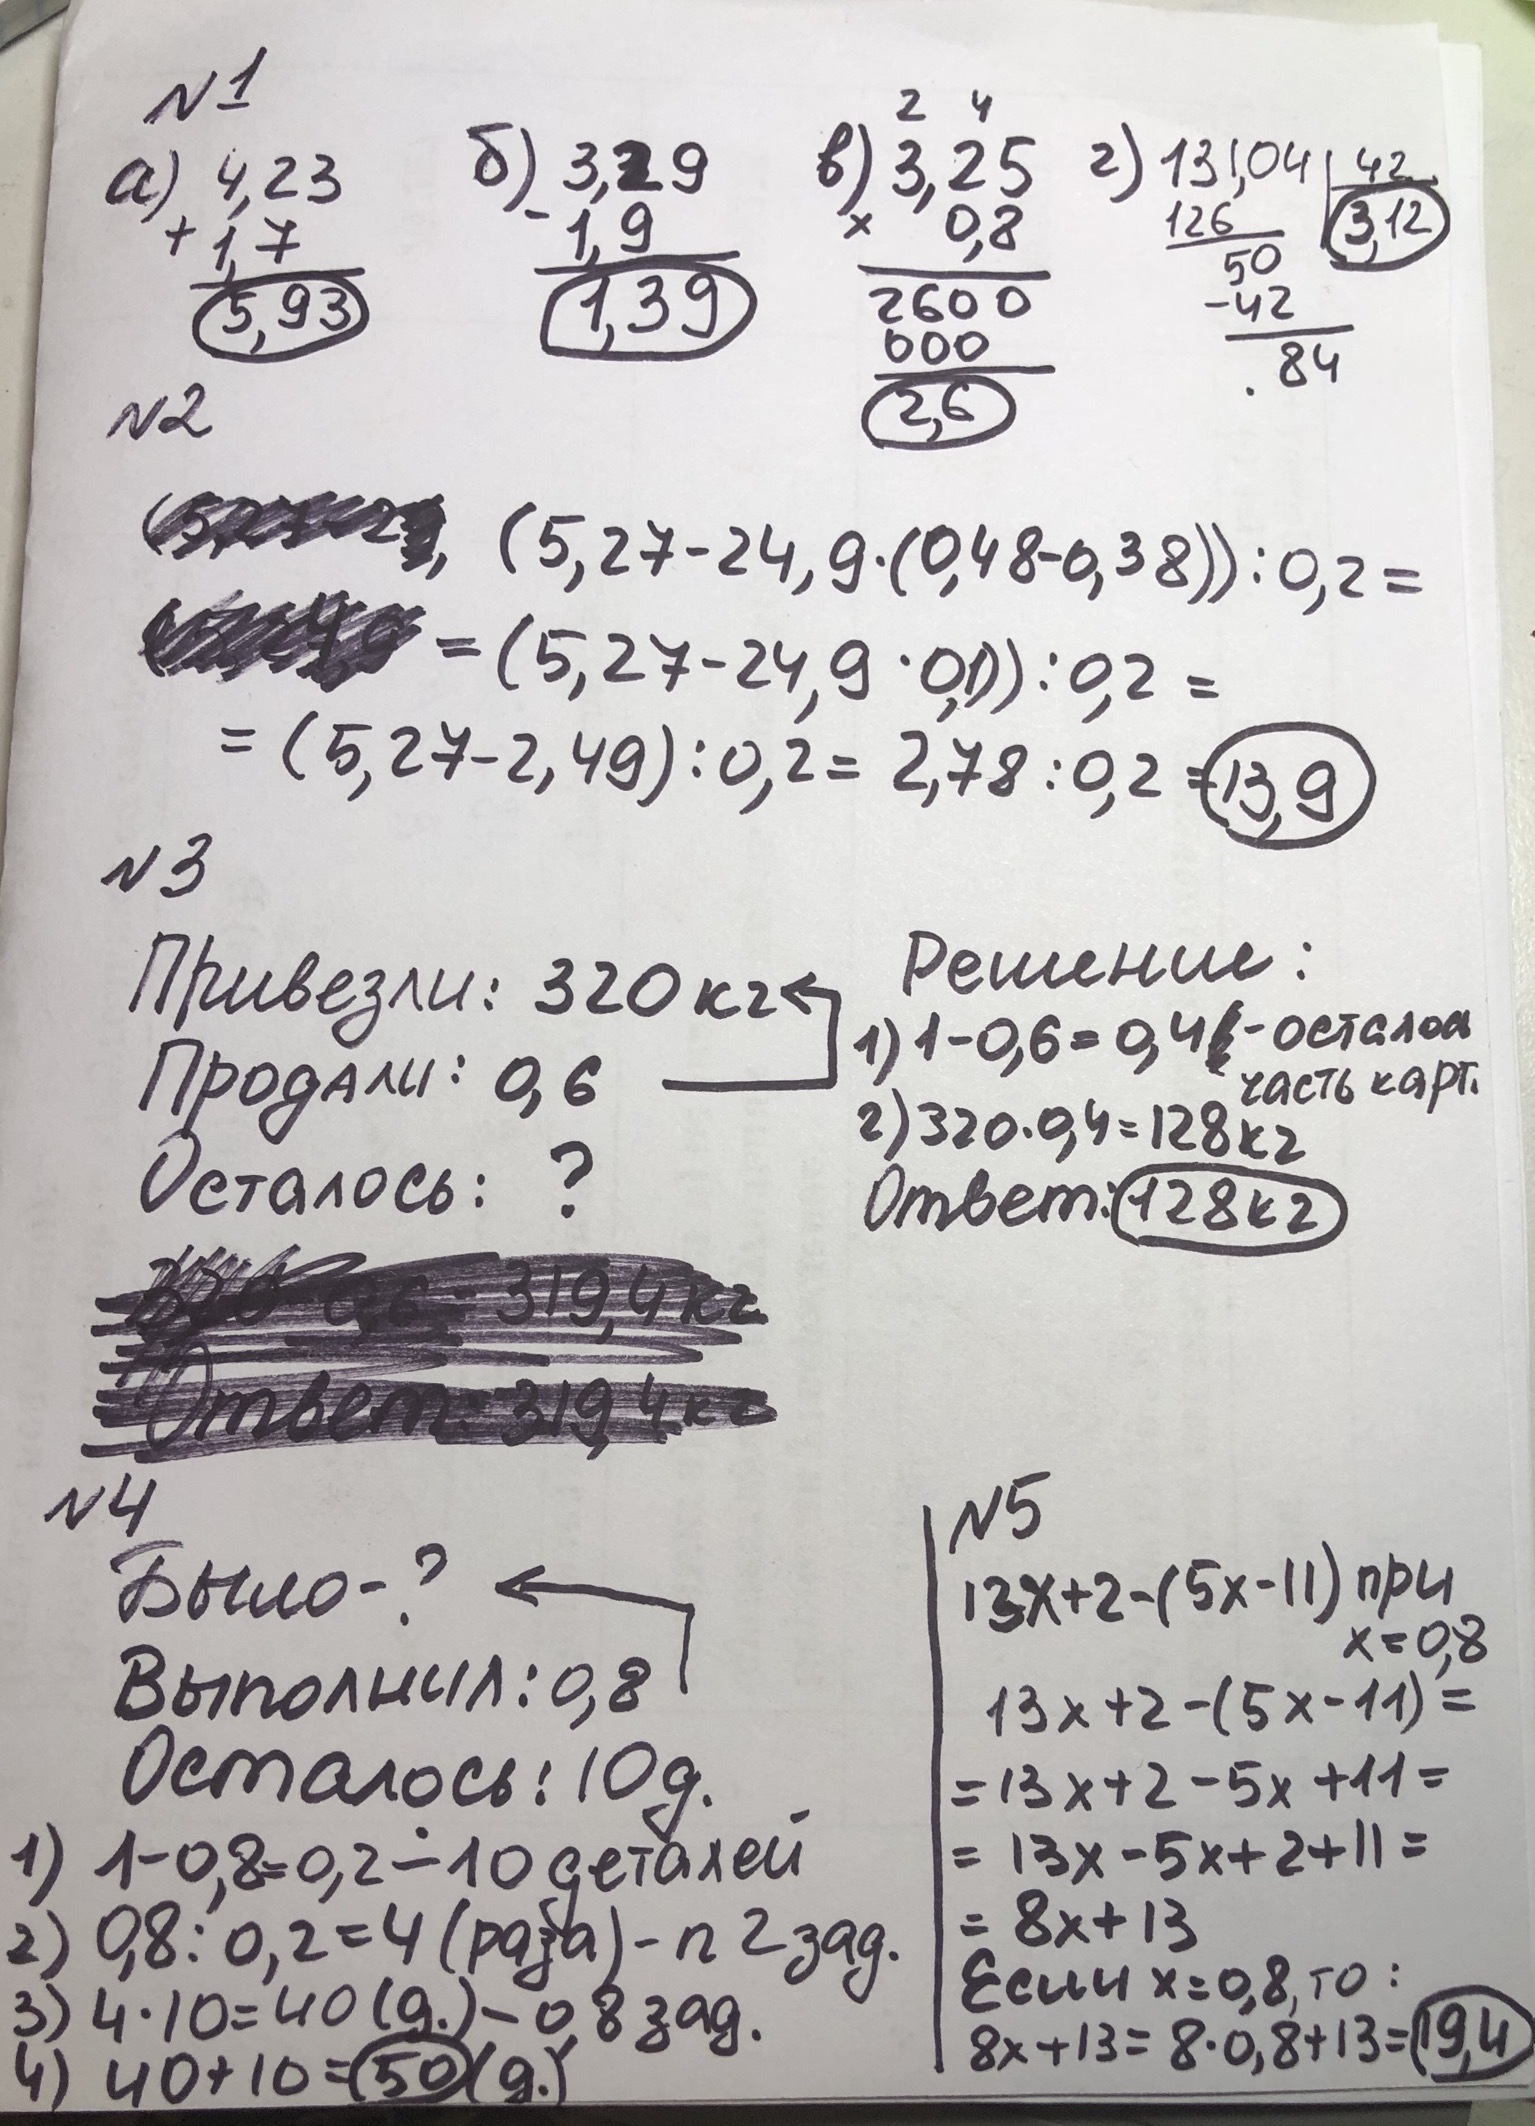 №1
а) 4,23
+ 1,7
5,93
б) 3,29
- 1,9
1,39
2 4
в) 3,25
× 0,8
2600
000
2,6
г) 131,04 | 42
126 3,12
50
-42
84
№2
(5,27-24,9·(0,48-0,38)):0,2=
=(5,27-24,9·0,1)):0,2=
=(5,27-2,49):0,2=2,78:0,2=13,9
№3
Привезли: 320 кг
Продали: 0,6
Осталось: ?
Решение:
1) 1-0,6=0,4 - осталоа
часть карт.
2) 320·0,4=128кг
Ответ: 128кг
319,4кг
Ответ: 319,4кг
№4
Было-?
Выполнил: 0,8
Осталось: 10д.
1) 1-0,8=0,2-10 деталей
2) 0,8:0,2=4(раза)-п 2 зад.
3) 4·10=40(д.)-0,8 зад.
4) 40+10=50(д.)
№5
13x+2-(5x-11) при
x=0,8
13x+2-(5x-11)=
=13x+2-5x+11=
=13x-5x+2+11=
=8x+13
Если x=0,8, то:
8x+13=8·0,8+13=19,4